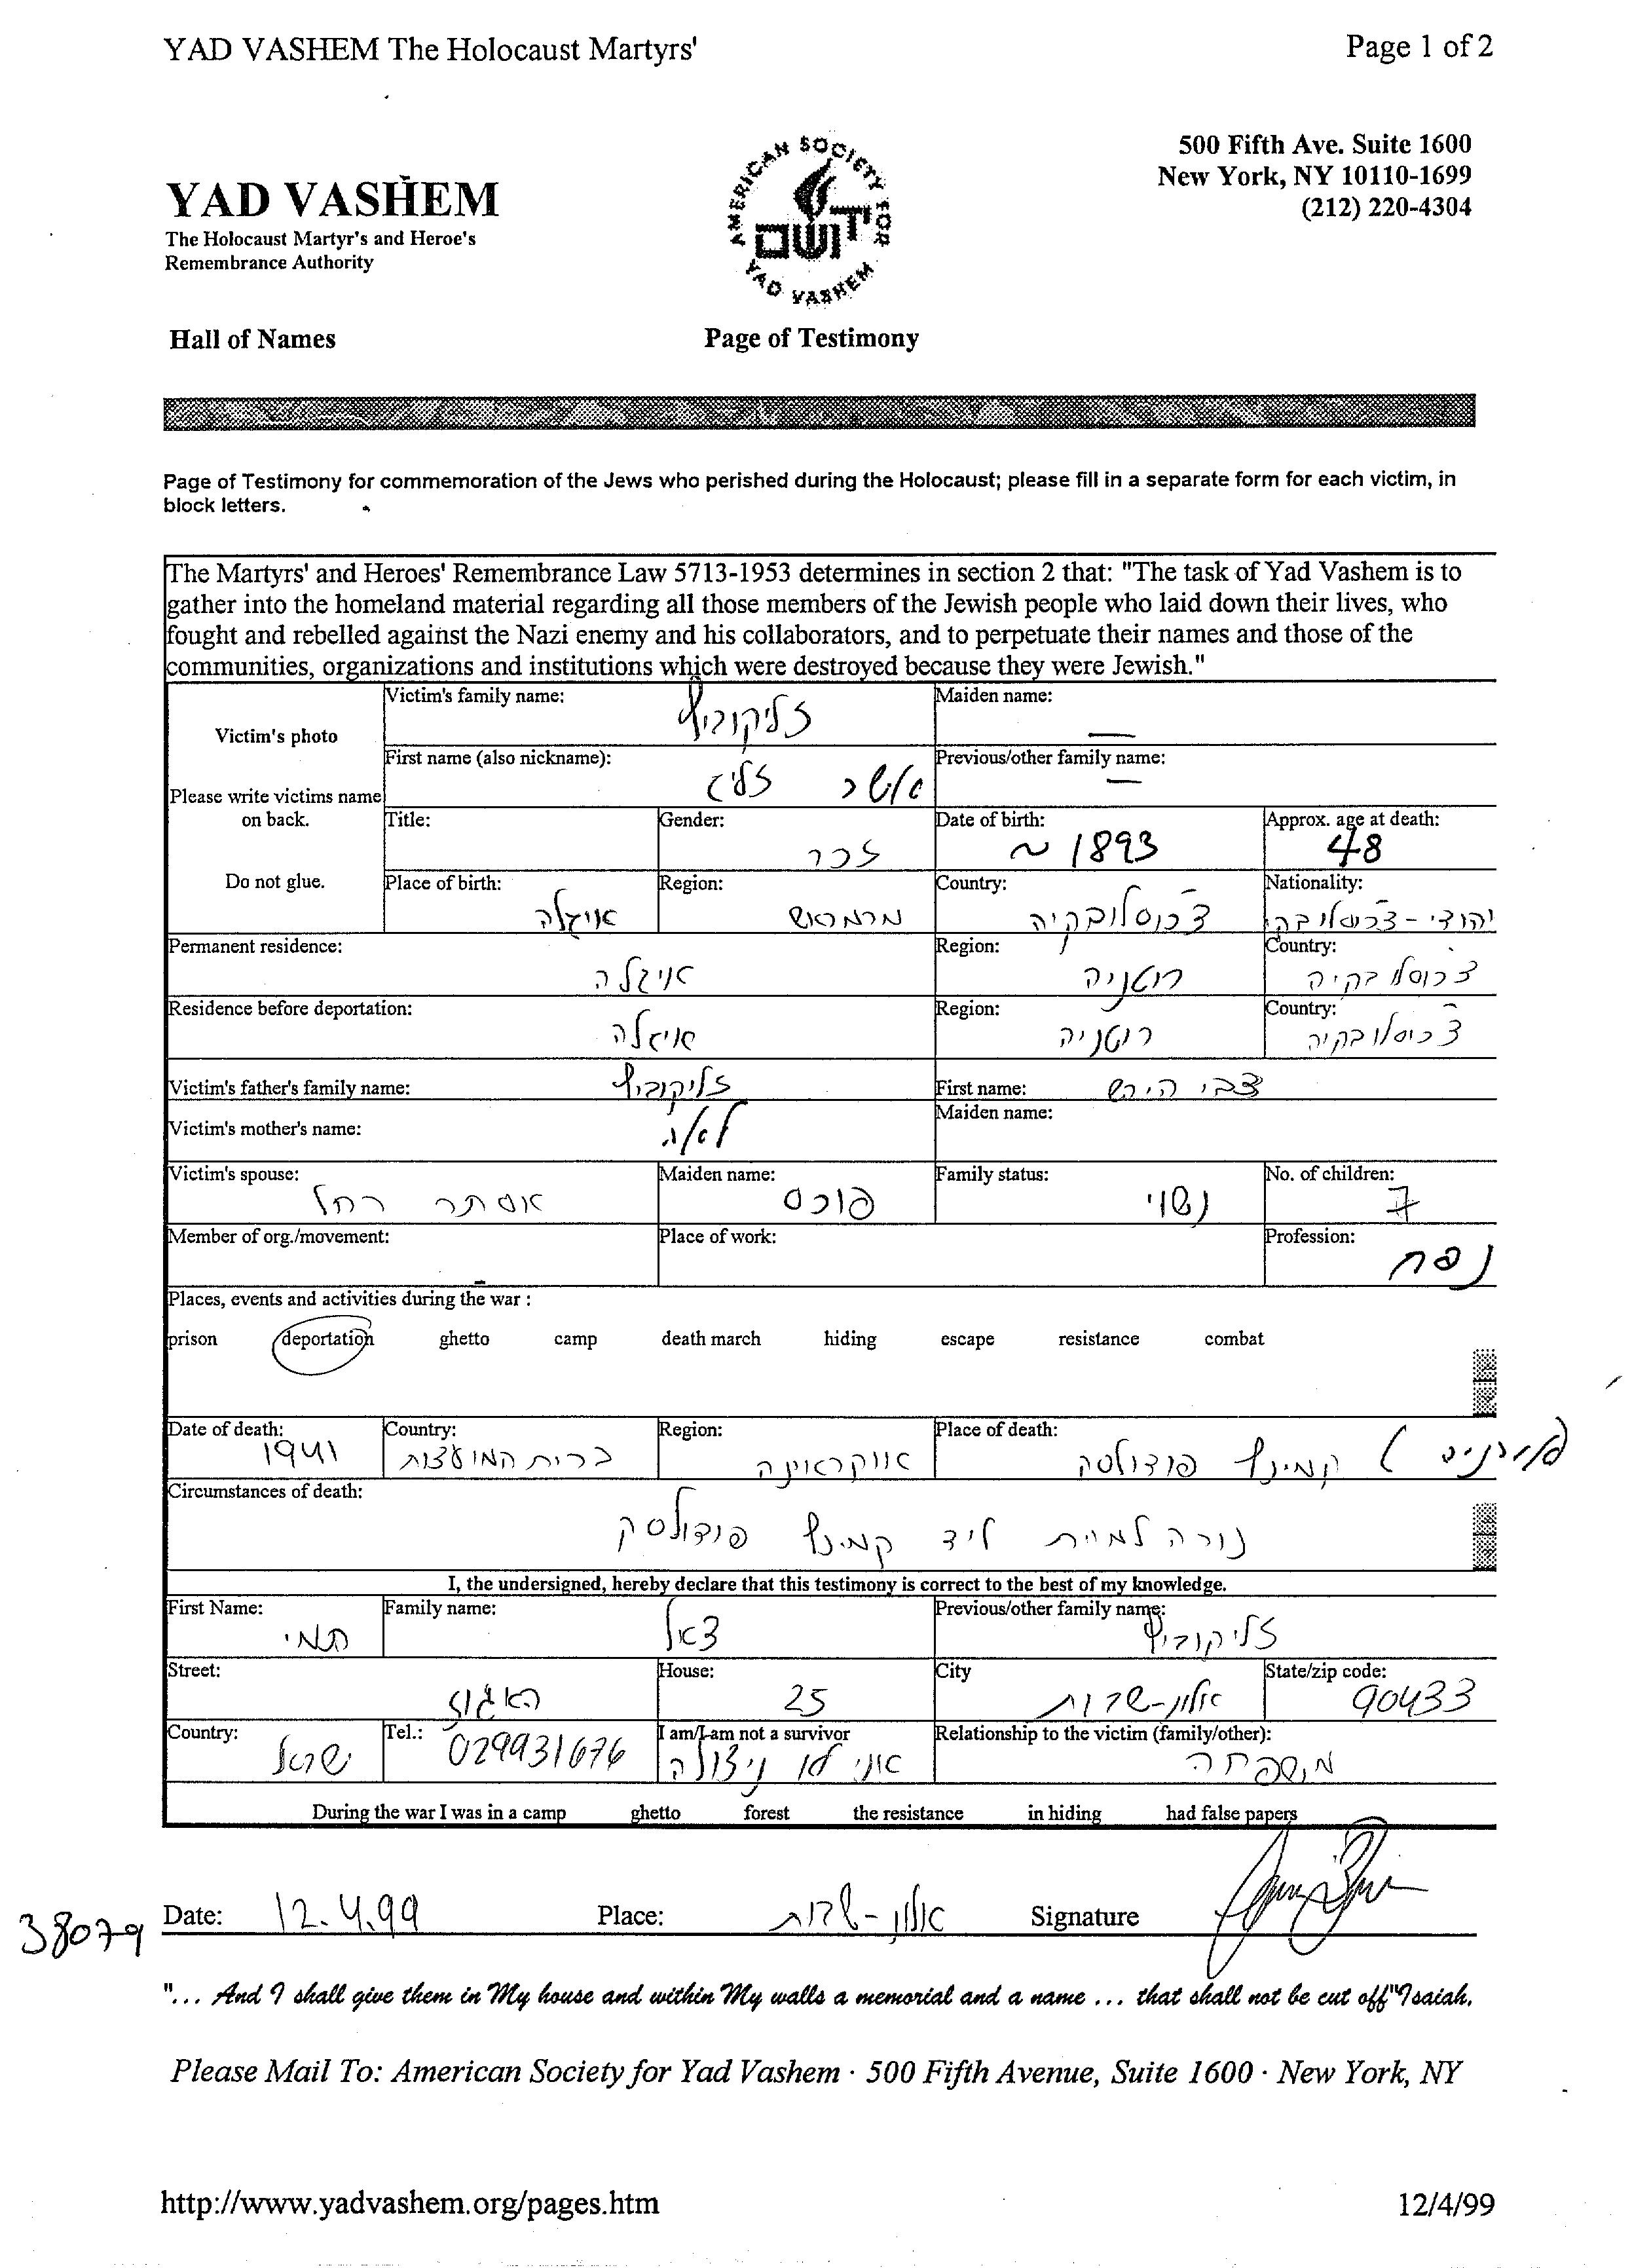 YAD VASHEM The Holocaust Martyrs' Page 1 of 2
500 Fifth Ave. Suite 1600
New York, NY 10110-1699
(212) 220-4304
YAD VASHEM
The Holocaust Martyr's and Heroe's
Remembrance Authority
AMERICAN SOCIETY FOR
יד ושם
YAD VASHEM
Hall of Names Page of Testimony
Page of Testimony for commemoration of the Jews who perished during the Holocaust; please fill in a separate form for each victim, in
block letters.
The Martyrs' and Heroes' Remembrance Law 5713-1953 determines in section 2 that: "The task of Yad Vashem is to
gather into the homeland material regarding all those members of the Jewish people who laid down their lives, who
fought and rebelled against the Nazi enemy and his collaborators, and to perpetuate their names and those of the
communities, organizations and institutions which were destroyed because they were Jewish."
Victim's photo
Please write victims name
on back.
Do not glue.
Victim's family name: זליקוביץ Maiden name: —
First name (also nickname): זליג Previous/other family name: —
Title: Gender: זכר Date of birth: ~ 1893 Approx. age at death: 48
Place of birth: איזלה Region: מרמרוש Country: צ'כוסלובקיה Nationality: יהודי-צ'כוסלובקי
Permanent residence: איזלה Region: רוטניה Country: צ'כוסלובקיה
Residence before deportation: איזלה Region: רוטניה Country: צ'כוסלובקיה
Victim's father's family name: זליקוביץ First name: צבי הירש
Victim's mother's name: Maiden name:
Victim's spouse: אסתר רחל Maiden name: פוכס Family status: נשוי No. of children: 7
Member of org./movement: - Place of work: Profession: נפח
Places, events and activities during the war :
prison deportation ghetto camp death march hiding escape resistance combat
Date of death: 1941 Country: ברית המועצות Region: אוקראינה Place of death: קמינץ פודולסק
Circumstances of death:
נורה למוות ליד קמינץ פודולסק
I, the undersigned, hereby declare that this testimony is correct to the best of my knowledge.
First Name: תמי Family name: צאל Previous/other family name: זליקוביץ
Street: האגוז House: 25 City אלון-שבות State/zip code: 90433
Country: ישראל Tel.: 029931676 I am/I am not a survivor אני לא ניצולה Relationship to the victim (family/other): משפחה
During the war I was in a camp ghetto forest the resistance in hiding had false papers
38079 Date: 12.4.99 Place: אלון-שבות Signature
"... And I shall give them in My house and within My walls a memorial and a name ... that shall not be cut off"Isaiah.
Please Mail To: American Society for Yad Vashem · 500 Fifth Avenue, Suite 1600 · New York, NY
http://www.yadvashem.org/pages.htm 12/4/99